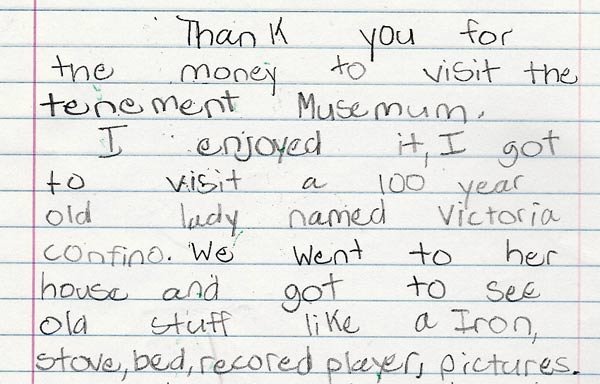 Thank you for
the money to visit the
tenement Musemum.
I enjoyed it, I got
to visit a 100 year
old lady named Victoria
confino. We went to her
house and got to see
old stuff like a Iron,
stove, bed, recored player, pictures.